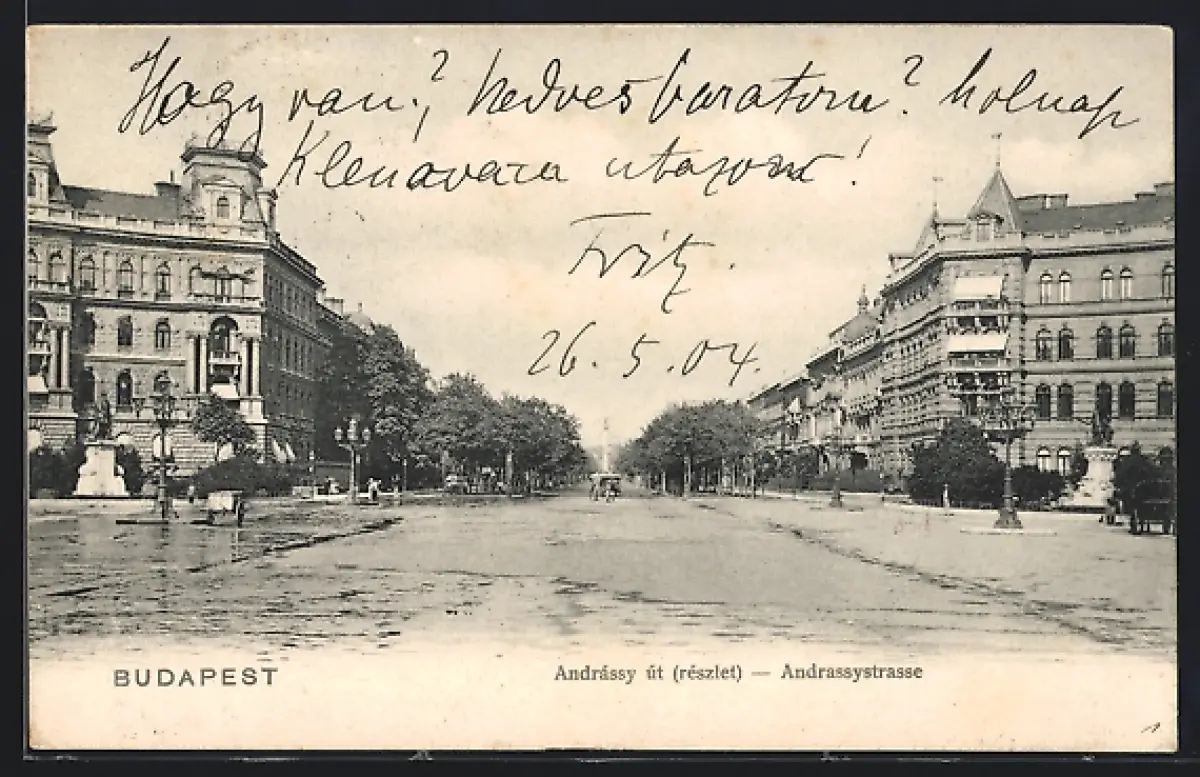 Hogy van? kedves baratom? holnap
Klenovara utazom!
Fritz.
26.5.04.
BUDAPEST
Andrássy út (részlet) — Andrassystrasse